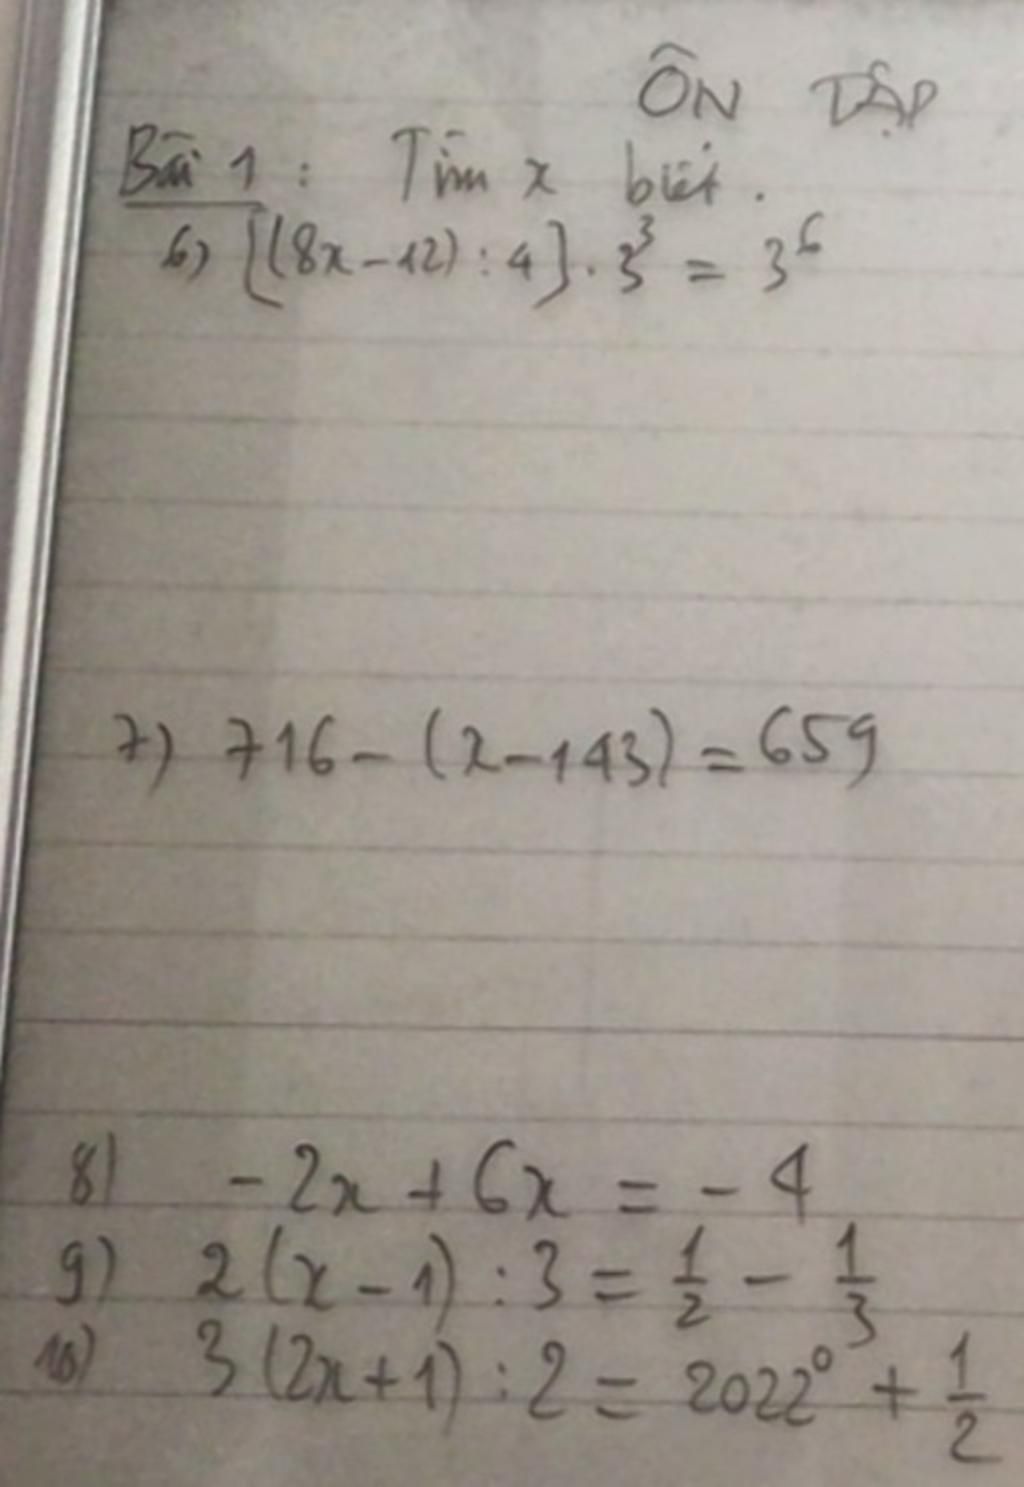 ÔN TẬP
Bài 1: Tìm x biết.
6) [(8x-12):4].3³ = 3⁶
7) 716-(x-143)=659
8) -2x+6x = -4
9) 2(x-1):3 = 1/2 - 1/3
10) 3(2x+1):2 = 2022⁰ + 1/2